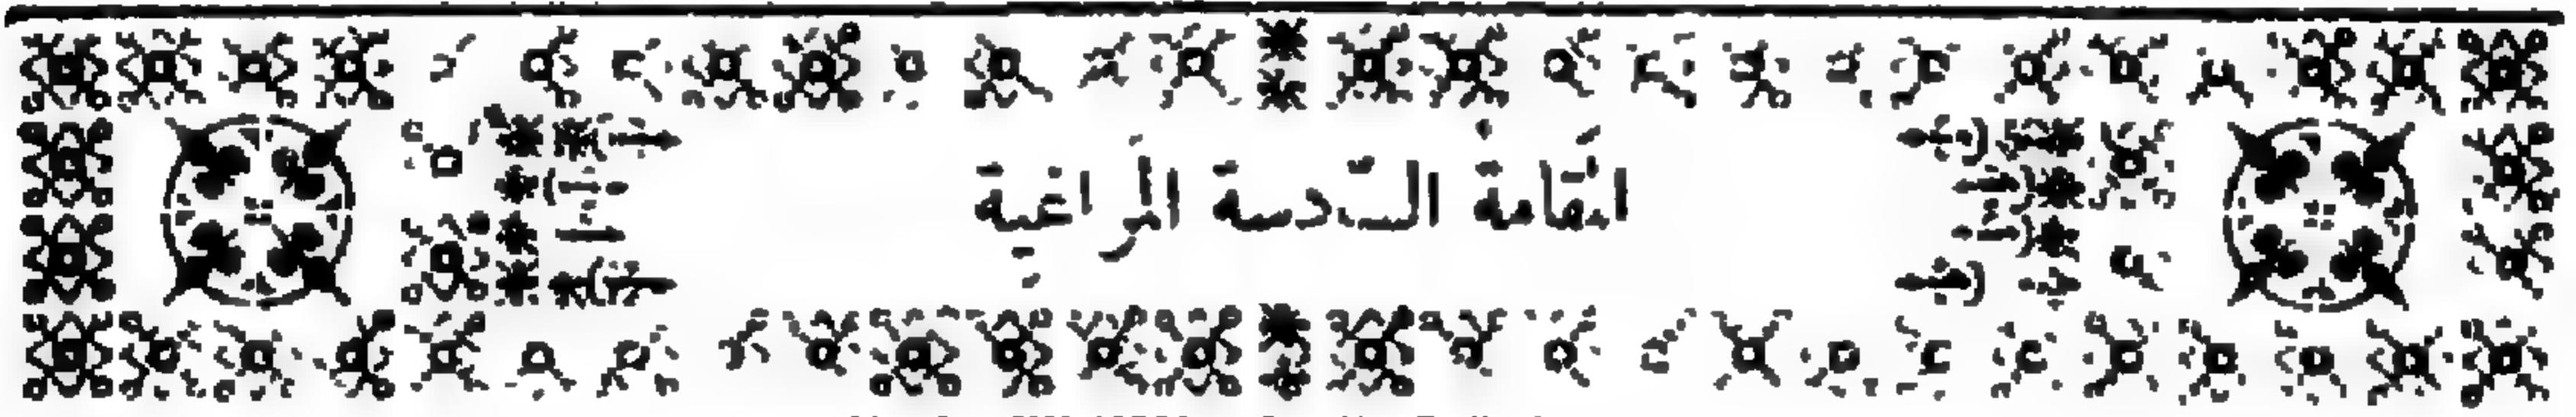 المقامة السّادسة المراغية